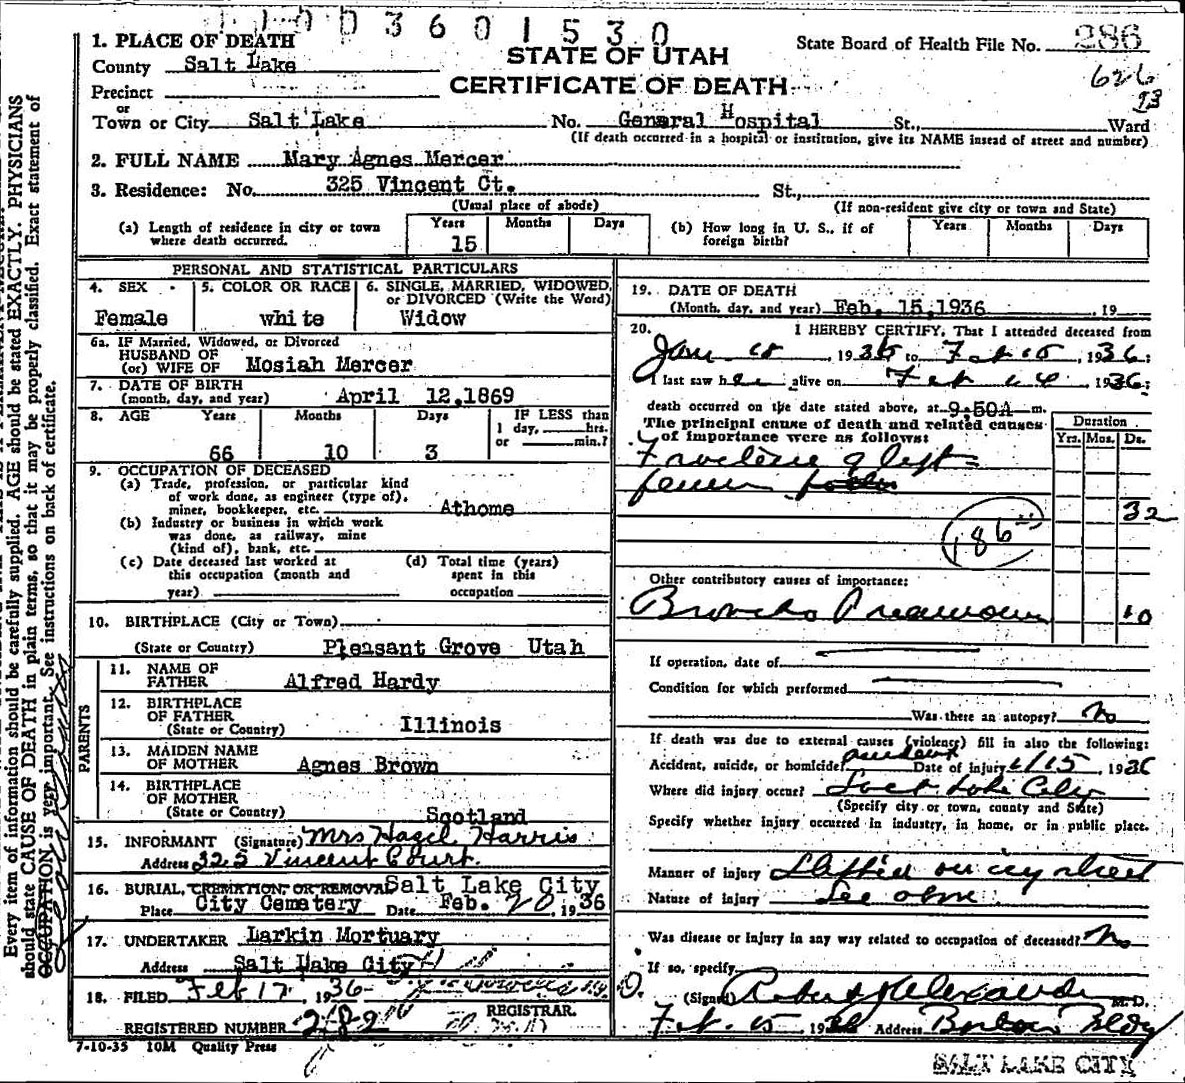 1003601530
1. PLACE OF DEATH
County Salt Lake
STATE OF UTAH
State Board of Health File No. 286
Precinct
CERTIFICATE OF DEATH
626
93
or
Town or City Salt Lake No. General Hospital St., Ward
(If death occurred in a hospital or institution, give its NAME insead of street and number)
2. FULL NAME Mary Agnes Mercer
3. Residence: No. 325 Vincent Ct. St.,
(Usual place of abode) (If non-resident give city or town and State)
(a) Length of residence in city or town where death occurred. Years 15 Months Days
(b) How long in U. S., if of foreign birth? Years Months Days
PERSONAL AND STATISTICAL PARTICULARS
4. SEX Female
5. COLOR OR RACE white
6. SINGLE, MARRIED, WIDOWED, or DIVORCED (Write the Word) Widow
6a. IF Married, Widowed, or Divorced
HUSBAND OF
(or) WIFE OF Mosiah Mercer
7. DATE OF BIRTH
(month, day, and year) April 12,1869
8. AGE Years Months Days IF LESS than
1 day, hrs.
or min.?
66 10 3
9. OCCUPATION OF DECEASED
(a) Trade, profession, or particular kind
of work done, as engineer (type of),
miner, bookkeeper, etc. Athome
(b) Industry or business in which work
was done, as railway, mine
(kind of), bank, etc.
(c) Date deceased last worked at
this occupation (month and
year)
(d) Total time (years)
spent in this
occupation
10. BIRTHPLACE (City or Town)
(State or Country) Pleasant Grove Utah
PARENTS
11. NAME OF
FATHER Alfred Hardy
12. BIRTHPLACE
OF FATHER
(State or Country) Illinois
13. MAIDEN NAME
OF MOTHER Agnes Brown
14. BIRTHPLACE
OF MOTHER
(State or Country) Scotland
15. INFORMANT (Signature) Mrs Hazel Harris
Address 325 Vincent Court.
16. BURIAL, CREMATION, OR REMOVAL Salt Lake City
Place City Cemetery Date Feb. 20, 1936
17. UNDERTAKER Larkin Mortuary
Address Salt Lake City
18. FILED Feb 17, 1936
REGISTRAR.
REGISTERED NUMBER 282
7-10-35 10M Quality Press
19. DATE OF DEATH
(Month, day, and year) Feb. 15,1936 , 19
20. I HEREBY CERTIFY, That I attended deceased from
Jan 15, 1936 to Feb 15, 1936;
I last saw her alive on Feb 14 1936;
death occurred on the date stated above, at 9,50A m.
The principal cause of death and related causes
of importance were as follows:
Duration
Yrs. Mos. Ds.
Fracture of left
femur
32
186
Other contributory causes of importance:
Broncho Pneumonia 10
If operation, date of
Condition for which performed
Was there an autopsy? No
If death was due to external causes (violency) fill in also the following:
Accident, suicide, or homicide? accident Date of injury 1/15, 1936
Where did injury occur? Salt Lake City
(Specify city or town, county and State)
Specify whether injury occurred in industry, in home, or in public place.
Manner of injury Slipped on icy street
Nature of injury See above
Was disease or injury in any way related to occupation of deceased? No
If so, specify
(Signed) Robert J Alexander M. D.
Feb. 15 1936 Address Boston Bldg
SALT LAKE CITY
Every item of information should be carefully supplied. AGE should be stated EXACTLY. PHYSICIANS
should state CAUSE OF DEATH in plain terms, so that it may be properly classified. Exact statement of
OCCUPATION is very important. See instructions on back of certificate.